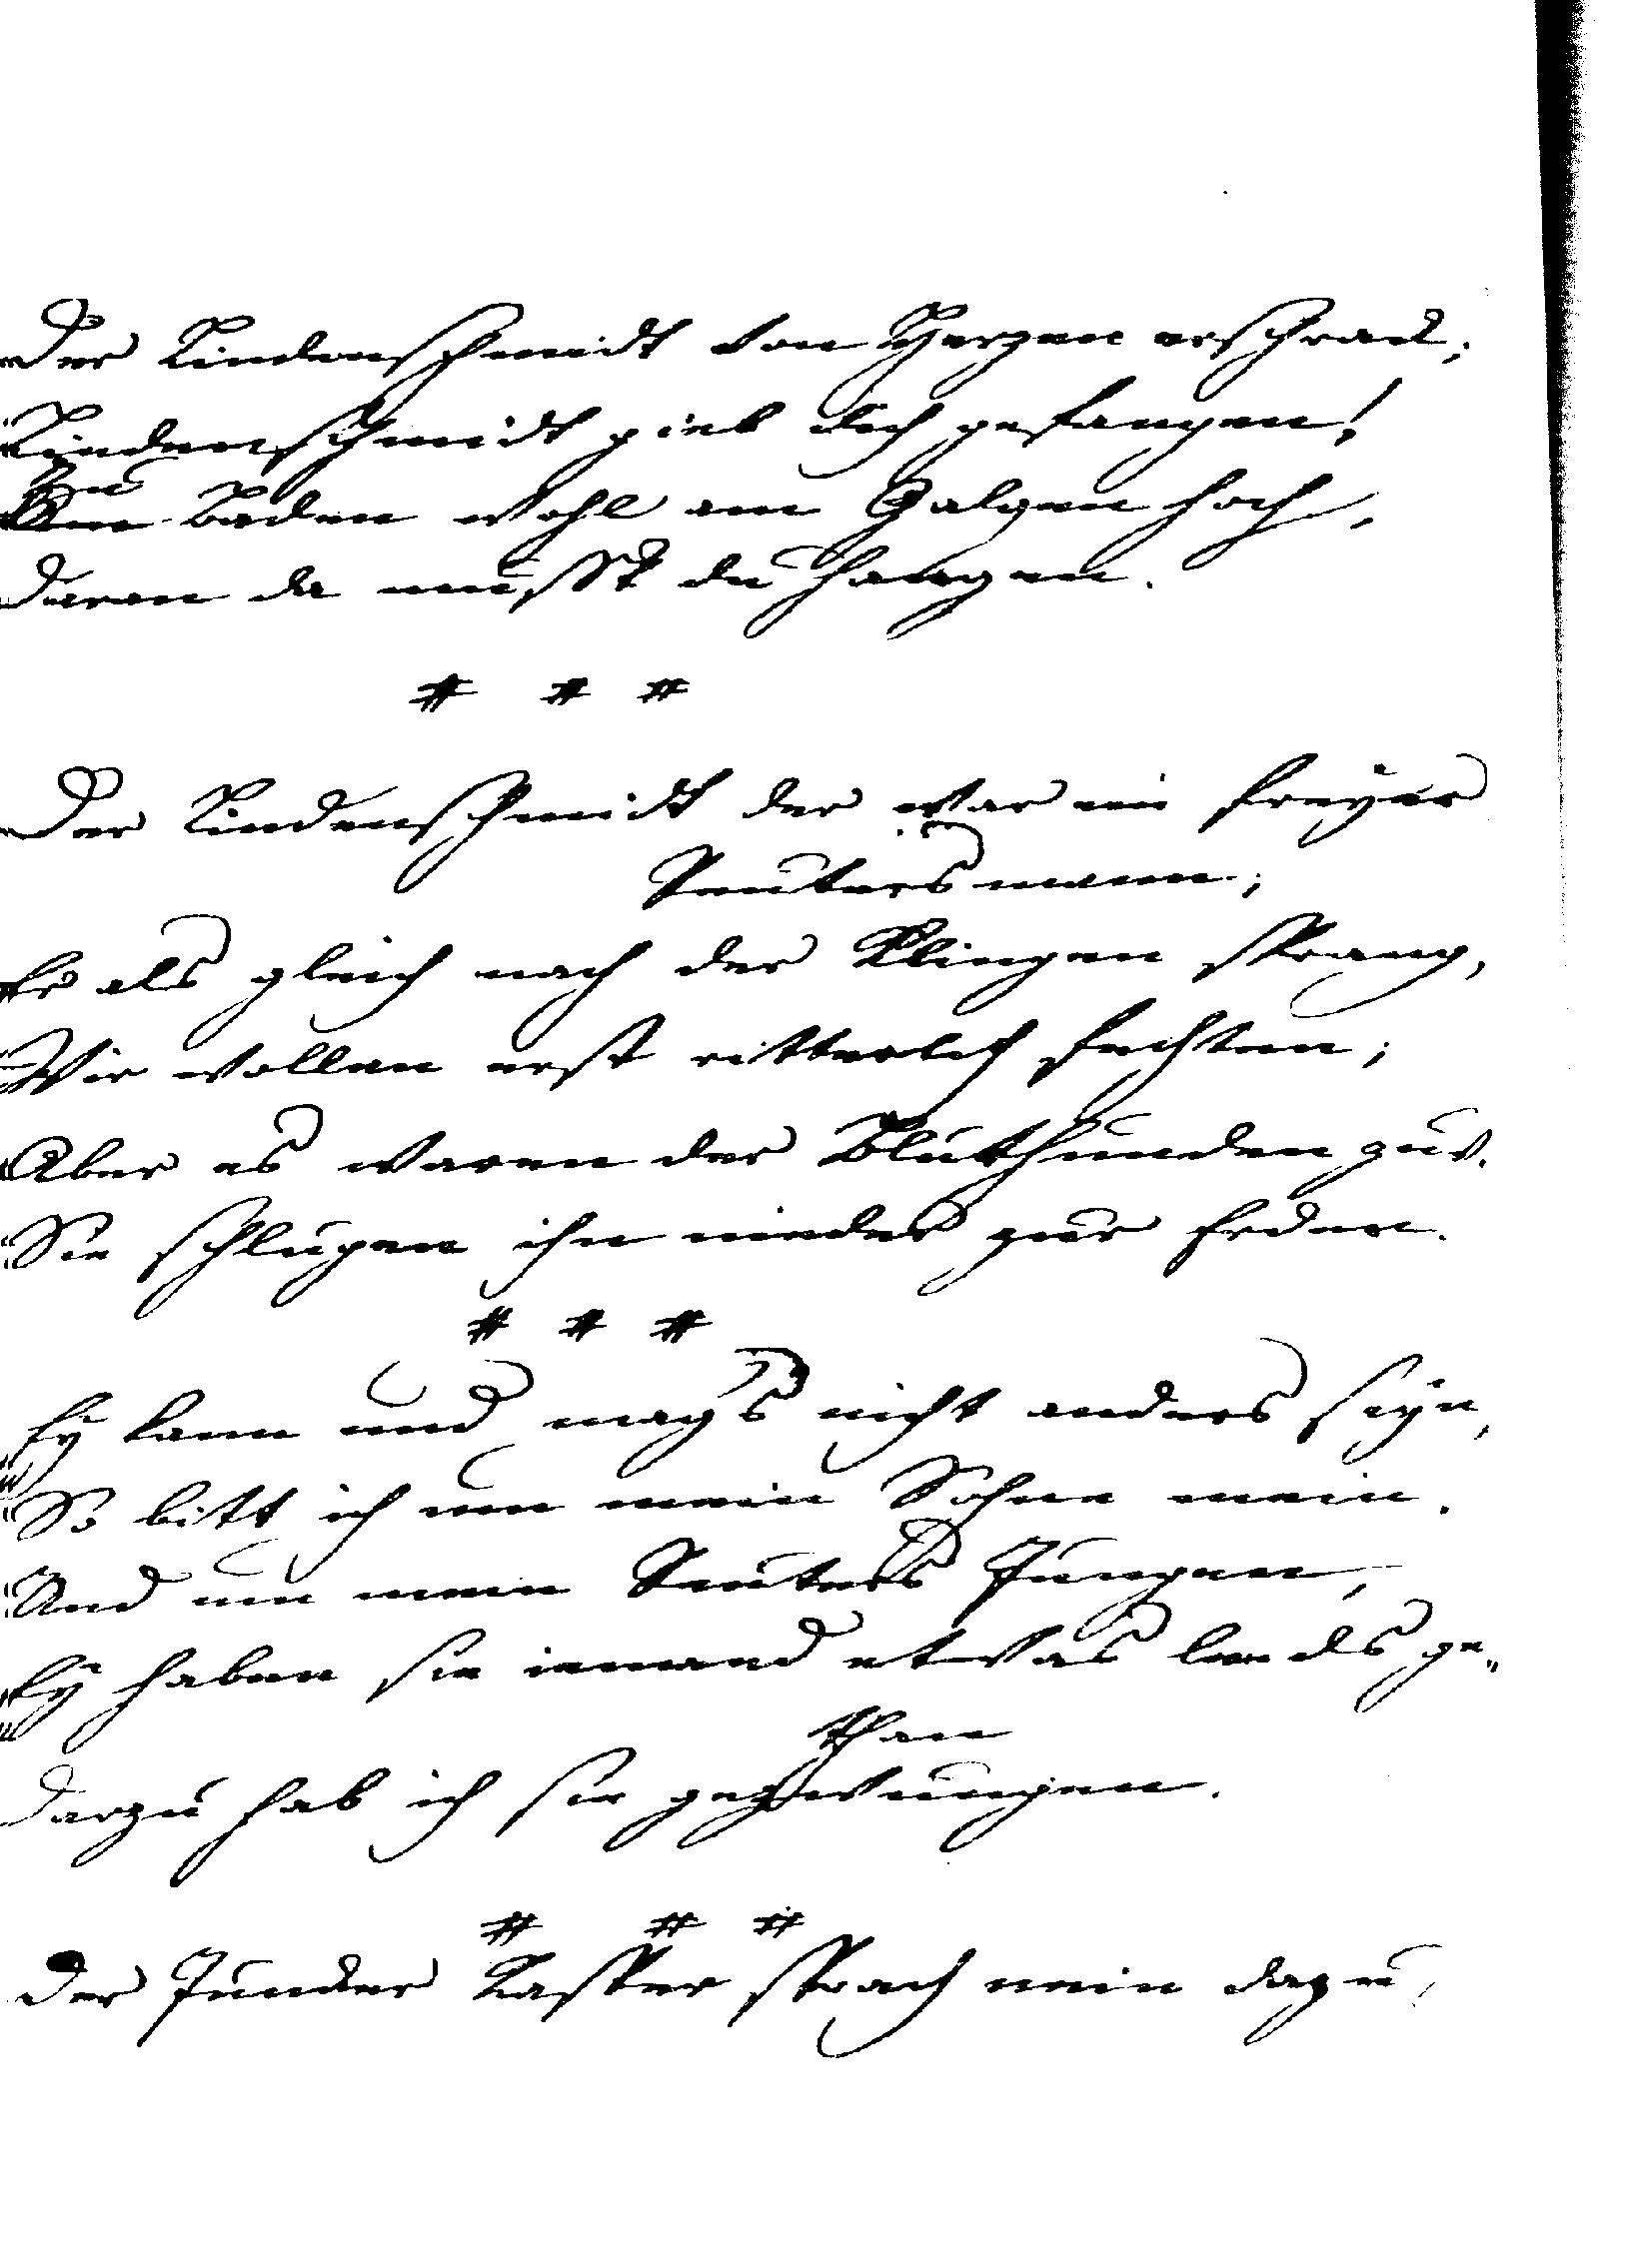 Der Lindenschmidt von Herzen erschrack;
„Lindenschmidt gieb dich gefangen!
Zu
Baden wohl am Galgen hoch,
Daran da mußt du hangen.
# # #
Der Lindenschmidt der war ein freyer
Reutersmann;
Er als gleich nach der Klingen sprang,
„Wir wollen erst ritterlich fechten;
Aber es waren der Bluthunden zuv.
Sie schlugen ihn nieder zur Erden.
# # #
Ey kann und mag's nicht anders seyn,
„So bitt ich um mein Sohne mein.
„Und um mein Reuters Jungen,
„Ey haben sie iemand etwas leeds ge„
than
Darzu hab ich sie gezwungen.
# # #
Der Juncker Kasper sprach nein dazu,